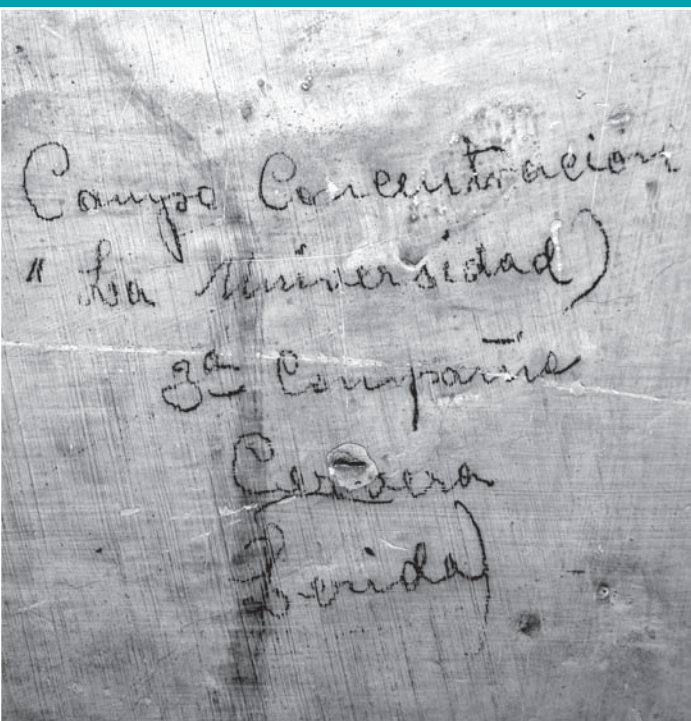 Campo Concentración
" La Universidad)
3ª Compañia
Cervera
Lerida)